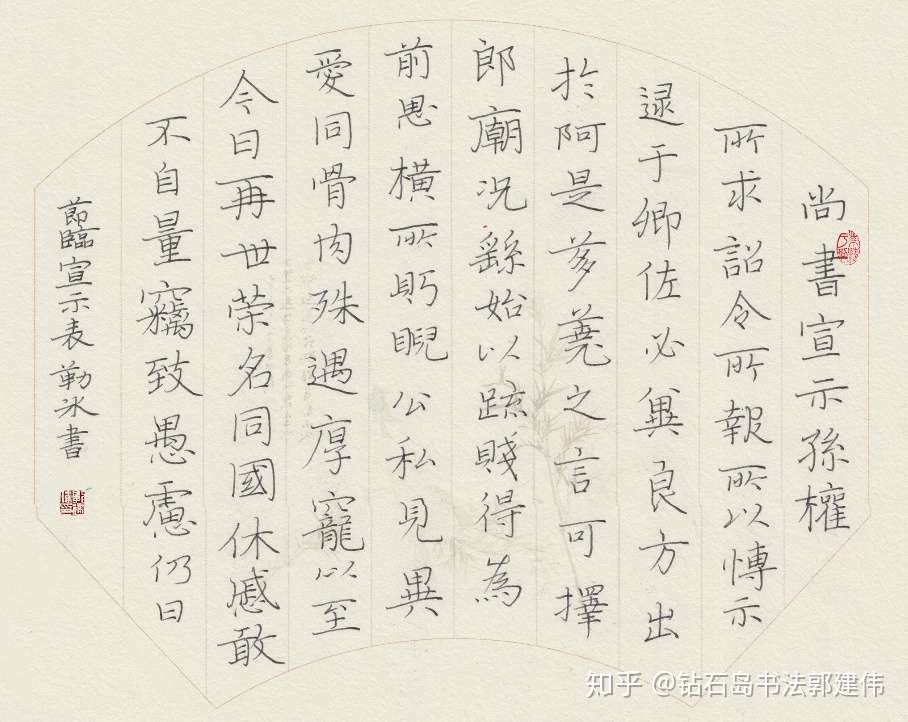 尚書宣示孫權
所求詔令所報所以愽示
逯于卿佐必兾良方出
於阿是芻蕘之言可擇
郎廟况繇始以疏賤得為
前恩横所眄睨公私見異
愛同骨肉殊遇厚寵以至
今日再世荣名同國休慼敢
不自量竊致愚慮仍日
節臨宣示表勒冰書
知乎 @钻石岛书法郭建伟